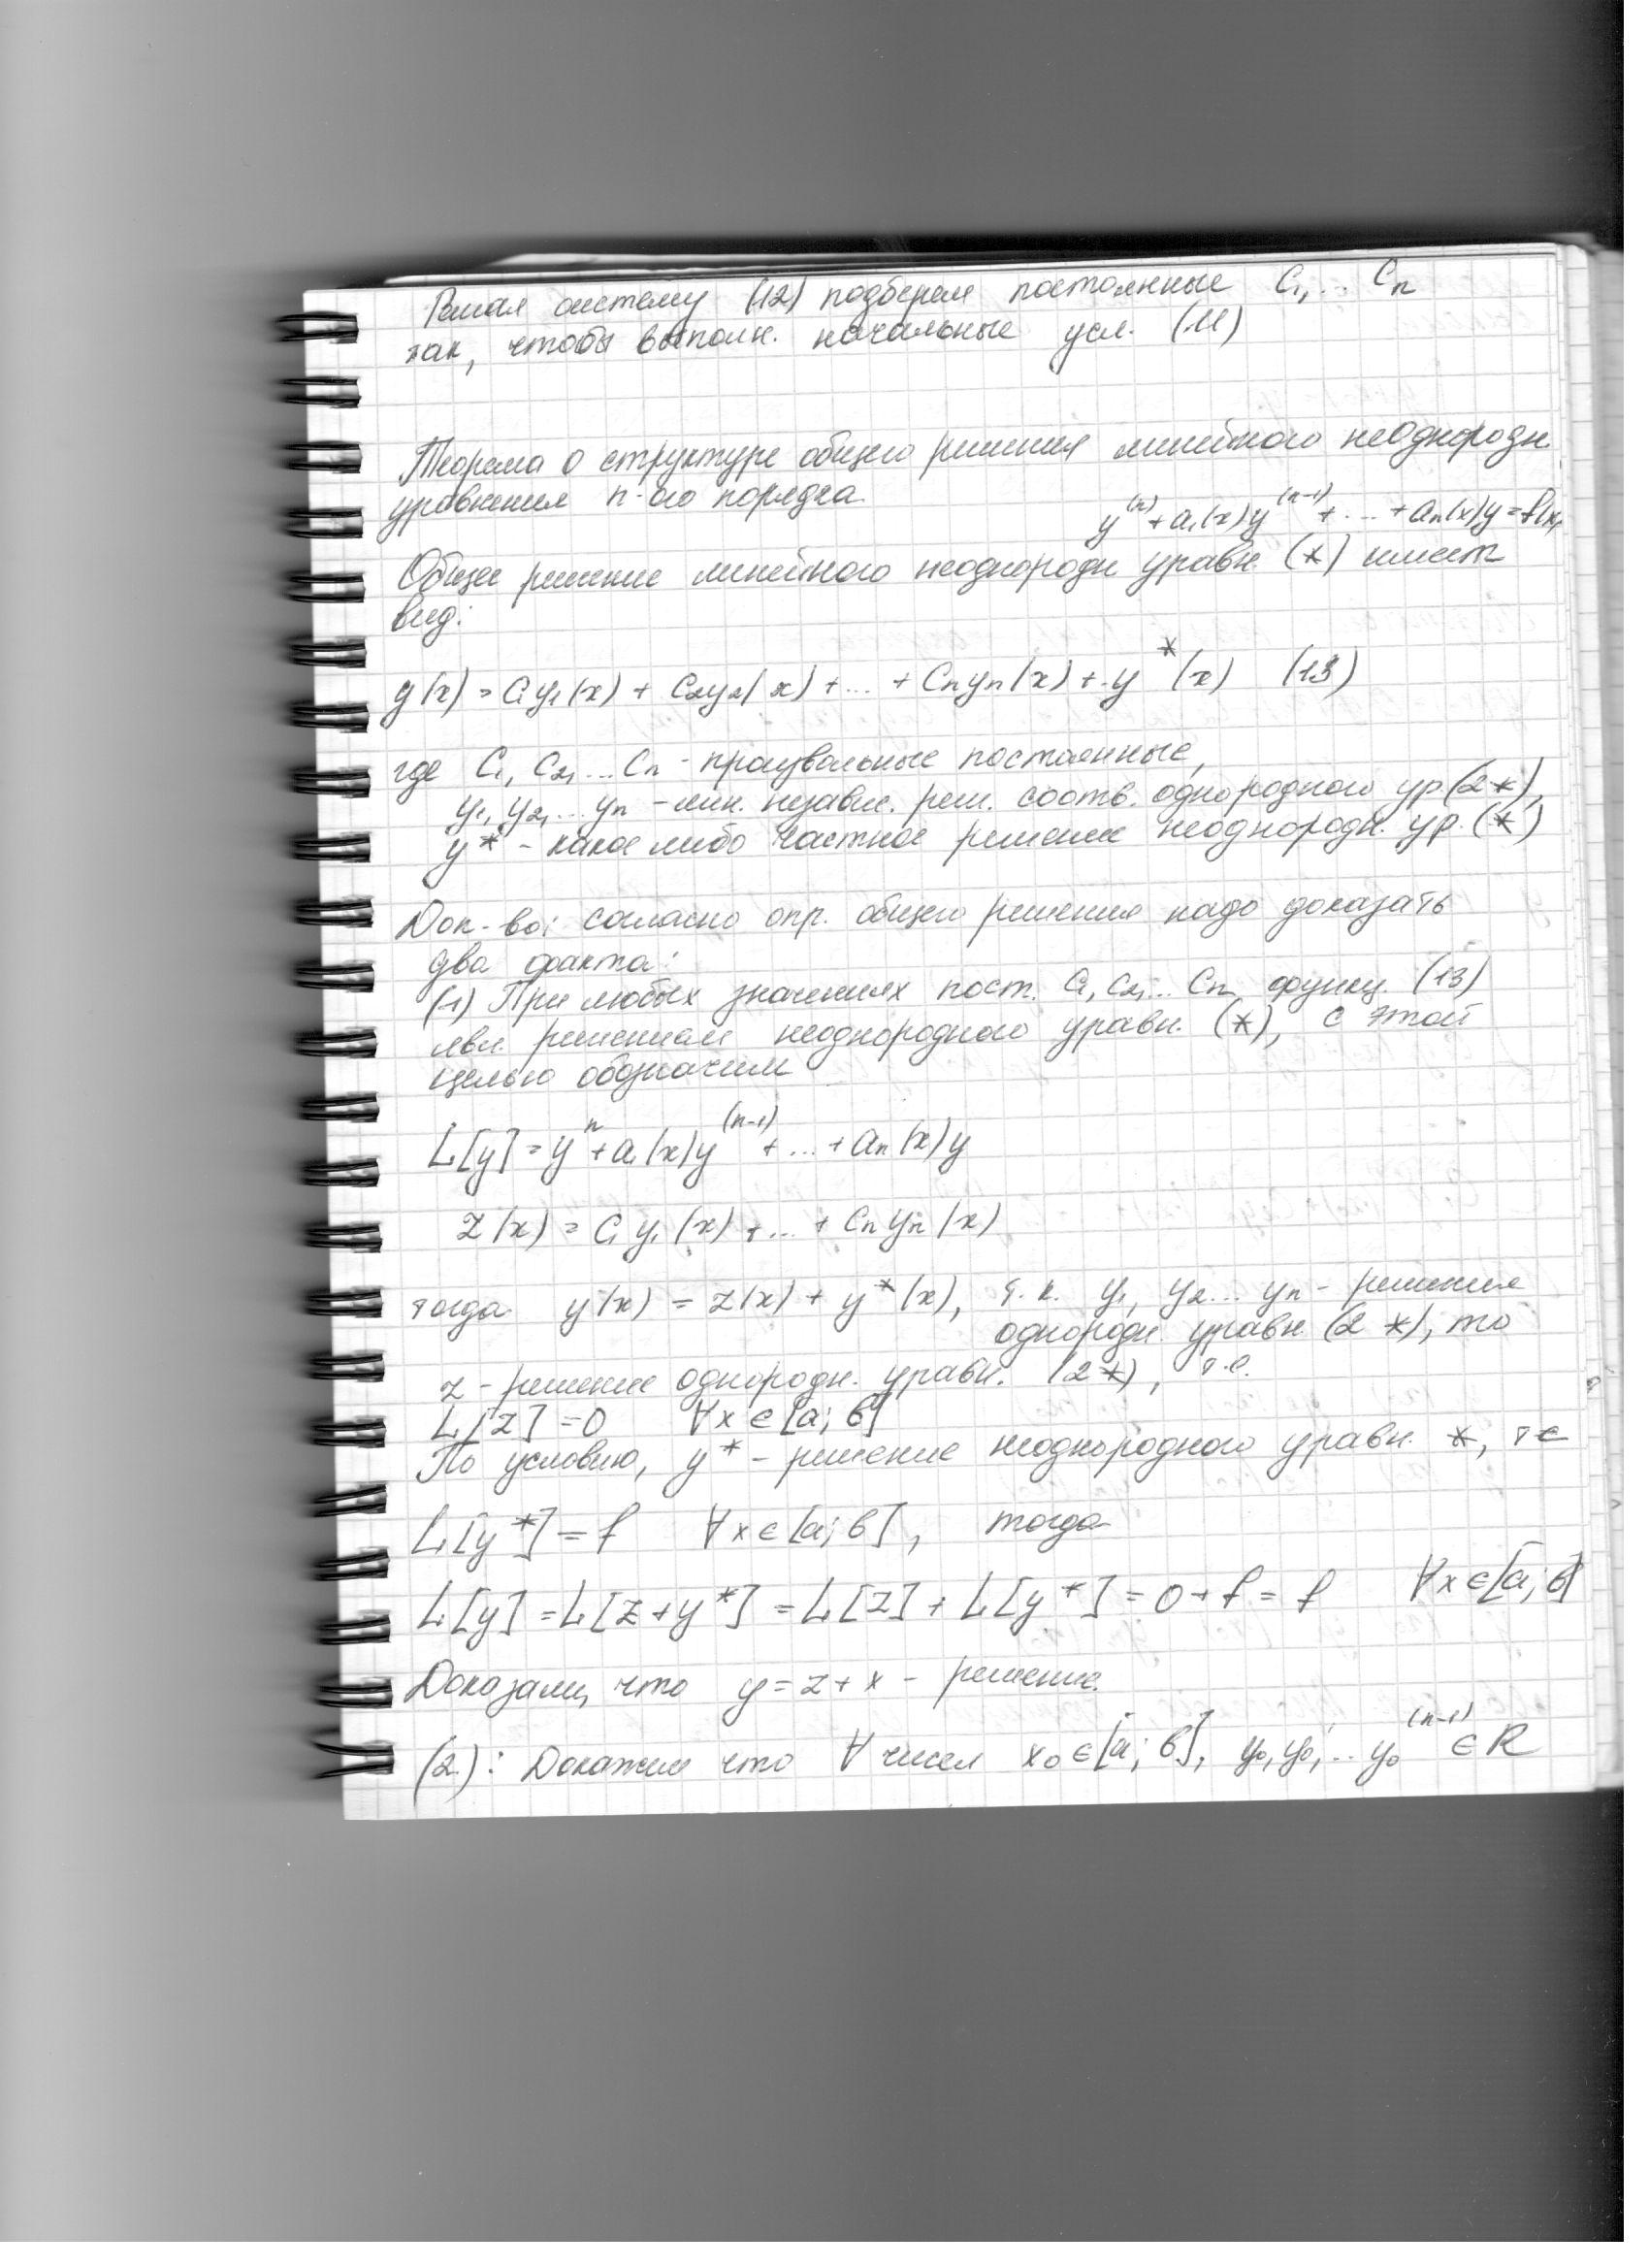 Решая систему (12) подберем постоянные C₁, ... Cₙ
так, чтобы выполн. начальные усл. (11)
Теорема о структуре общего решения линейного неоднородн.
уравнения n-ого порядка.
y⁽ⁿ⁾ + a₁(x)y⁽ⁿ⁻¹⁾ + ... + aₙ(x)y = f(x)
Общее решение линейного неоднородн уравн. (*) имеет
вид:
y(x) = C₁y₁(x) + C₂y₂(x) + ... + Cₙyₙ(x) + y*(x) (13)
где C₁, C₂, ... Cₙ - произвольные постоянные,
y₁, y₂, ... yₙ - лин. независ. реш. соотв. однородного ур (2*),
y* - какое либо частное решение неоднородн. ур. (*)
Док-во: согласно опр. общего решения надо доказать
два факта:
(1) При любых значениях пост. C₁, C₂, .. Cₙ функц. (13)
явл. решением неоднородного уравн. (*), с этой
целью обозначим
L[y] = yⁿ + a₁(x)y⁽ⁿ⁻¹⁾ + ... + aₙ(x)y
z(x) = C₁y₁(x) + ... + Cₙyₙ(x)
тогда y(x) = z(x) + y*(x), т.к. y₁, y₂ ... yₙ - решения
однородн. уравн. (2*), то
z - решение однородн. уравн. (2*), т.е.
L[z] = 0 ∀x ∈ [a; b]
По условию, y* - решение неоднородного уравн. *, те
L[y*] = f ∀x ∈ [a; b], тогда
L[y] = L[z + y*] = L[z] + L[y*] = 0 + f = f ∀x ∈ [a; b]
Доказали, что y = z + x - решение.
(2): Докажем что ∀ чисел x₀ ∈ [a; b], y₀, y₀', .. y₀⁽ⁿ⁻¹⁾ ∈ R